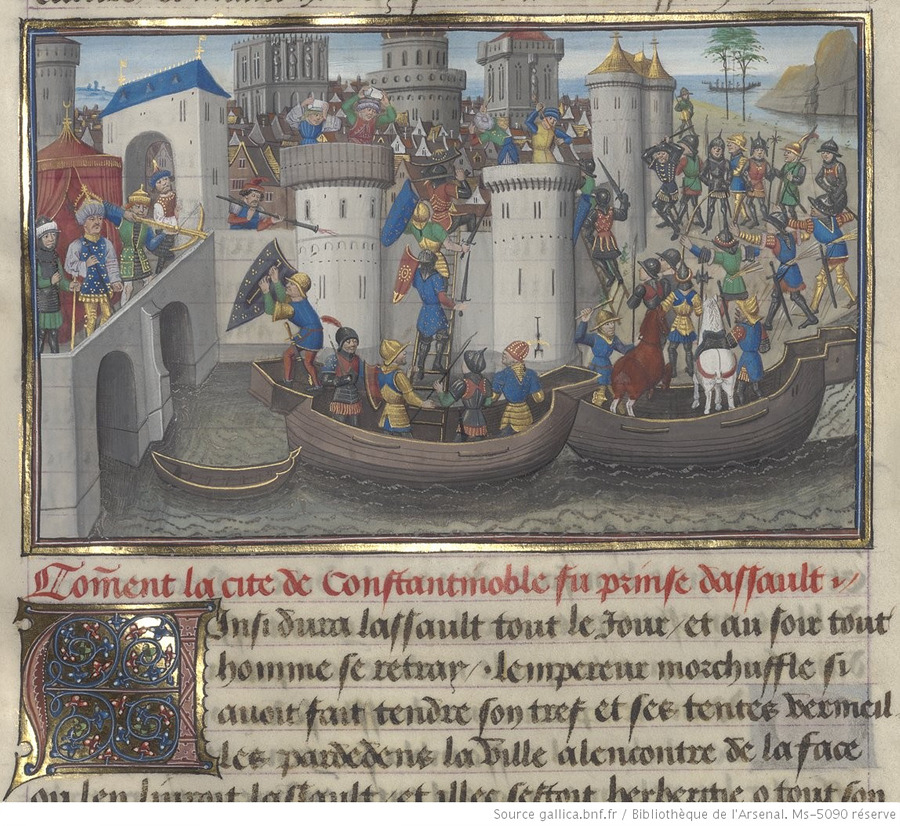 Com̃ent la cite de Constantinoble fu prinse dassault
Ainsi dura lassault tout le Jour / et au soir tout
homme se retray / . lempereur morchuffle si
auoit fait tendre son tref et ses tentes vermeil
les pardedens la ville alencontre de la face
ou len liuroit lassault / et illec sestoit herbergie o tout son
Source gallica.bnf.fr / Bibliothèque de l'Arsenal. Ms-5090 réserve